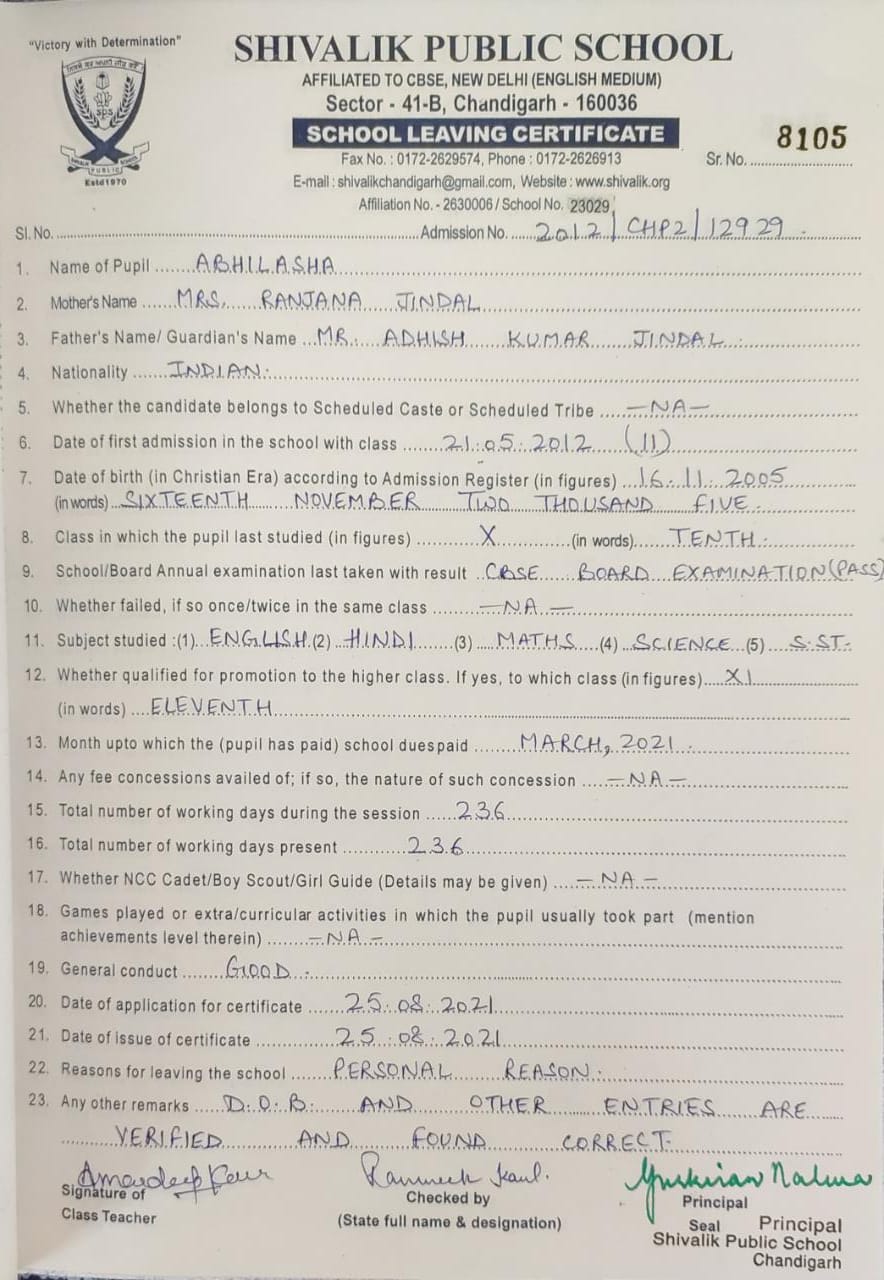 "Victory with Determination"
SHIVALIK PUBLIC SCHOOL
AFFILIATED TO CBSE, NEW DELHI (ENGLISH MEDIUM)
Sector - 41-B, Chandigarh - 160036
SCHOOL LEAVING CERTIFICATE
Fax No. : 0172-2629574, Phone : 0172-2626913
Sr. No. 8105
E-mail : shivalikchandigarh@gmail.com, Website : www.shivalik.org
Affiliation No. - 2630006 / School No. 23029
SPS
PUBLIC
Estd 1970
Sl. No. .......... Admission No. 2012/CHP2/12929.
1. Name of Pupil ABHILASHA
2. Mother's Name MRS. RANJANA JINDAL
3. Father's Name/ Guardian's Name MR. ADHISH KUMAR JINDAL.
4. Nationality INDIAN.
5. Whether the candidate belongs to Scheduled Caste or Scheduled Tribe -NA-
6. Date of first admission in the school with class 21.05.2012 (II)
7. Date of birth (in Christian Era) according to Admission Register (in figures) 16.11.2005
(in words) SIXTEENTH NOVEMBER TWO THOUSAND FIVE.
8. Class in which the pupil last studied (in figures) X (in words) TENTH.
9. School/Board Annual examination last taken with result CBSE BOARD EXAMINATION(PASS)
10. Whether failed, if so once/twice in the same class -NA-
11. Subject studied :(1) ENGLISH (2) HINDI (3) MATHS (4) SCIENCE (5) S.ST.
12. Whether qualified for promotion to the higher class. If yes, to which class (in figures) XI
(in words) ELEVENTH
13. Month upto which the (pupil has paid) school duespaid MARCH, 2021.
14. Any fee concessions availed of; if so, the nature of such concession -NA-
15. Total number of working days during the session 236
16. Total number of working days present 236
17. Whether NCC Cadet/Boy Scout/Girl Guide (Details may be given) -NA-
18. Games played or extra/curricular activities in which the pupil usually took part (mention
achievements level therein) -NA-
19. General conduct GOOD.
20. Date of application for certificate 25.08.2021
21. Date of issue of certificate 25.08.2021
22. Reasons for leaving the school PERSONAL REASON.
23. Any other remarks D.O.B. AND OTHER ENTRIES ARE
VERIFIED AND FOUND CORRECT.
Amardeep Kaur
Signature of
Class Teacher
Checked by
(State full name & designation)
Principal
Seal
Principal
Shivalik Public School
Chandigarh